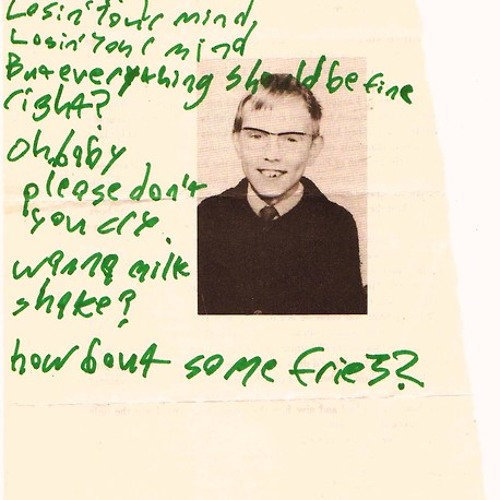 Losin' Your mind,
Losin' Your mind
But everything should be fine
right?
Oh baby
please don't
you cry
wanna milk
shake?
how bout some fries?